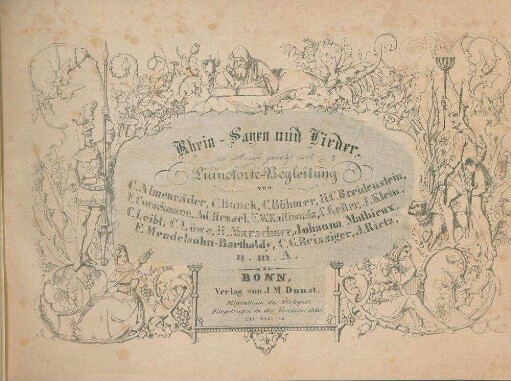 Rhein-Sagen und Lieder,
in Musik gesetzt mit
Pianoforte-Begleitung
VON
C. Almenräder, C. Banck, C. Böhner, H.C. Breidenstein,
F. Ad. Hensel, J.W. Kalliwoda, C. Keller, J. Klein,
C. Leibl, C. Löwe, H. Marschner, Johanna Mathieux,
F. Mendelsohn-Bartholdy, C.G. Reissiger, J. Rietz,
u. m. A.
BONN,
Verlag von J.M. Dunst.
Eigenthum des Verlegers.
Eingetragen in das Vereinsarchiv.